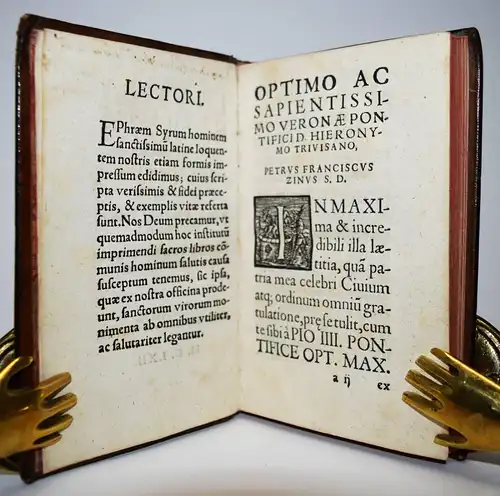 LECTORI.
EPhræm Syrum hominem
sanctissimũ latine loquen-
tem nostris etiam formis im-
pressum edidimus; cuius scri-
pta verissimis & fidei præce-
ptis, & exemplis vitæ referta
sunt. Nos Deum precamur, vt
quemadmodum hoc institutũ
imprimendi sacros libros cõ-
munis hominum salutis causa
susceptum tenemus, sic ipsa,
quæ ex nostra officina prode-
unt, sanctorum virorum mo-
nimenta ab omnibus vtiliter,
ac salutariter legantur.
OPTIMO AC
SAPIENTISSI-
MO VERONÆ PON-
TIFICI D. HIERONY-
MO TRIVISANO,
PETRVS FRANCISCVS
ZINVS S. D.
IN MAXI-
ma & incre-
dibili illa læ-
titia, quã pa-
tria mea celebri Ciuium
atq; ordinum omniũ gra-
tulatione, pręse tulit, cum
te sibi à PIO IIII. PON-
TIFICE OPT. MAX.
a ij
ex